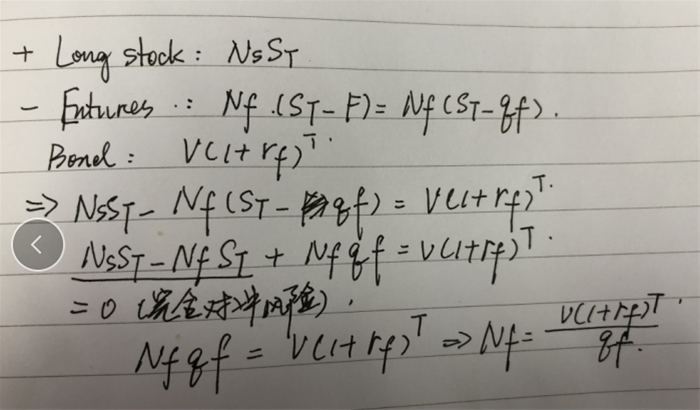 + Long stock: NsST
- Futures: Nf.(ST-F)=Nf(ST-qf).
Bond: V(1+rf)^T.
=> NsST-Nf(ST-qf)=V(1+rf)^T.
NsST-NfST+Nfqf=V(1+rf)^T.
=0(完全对冲风险).
Nfqf=V(1+rf)^T=>Nf=V(1+rf)^T/qf.